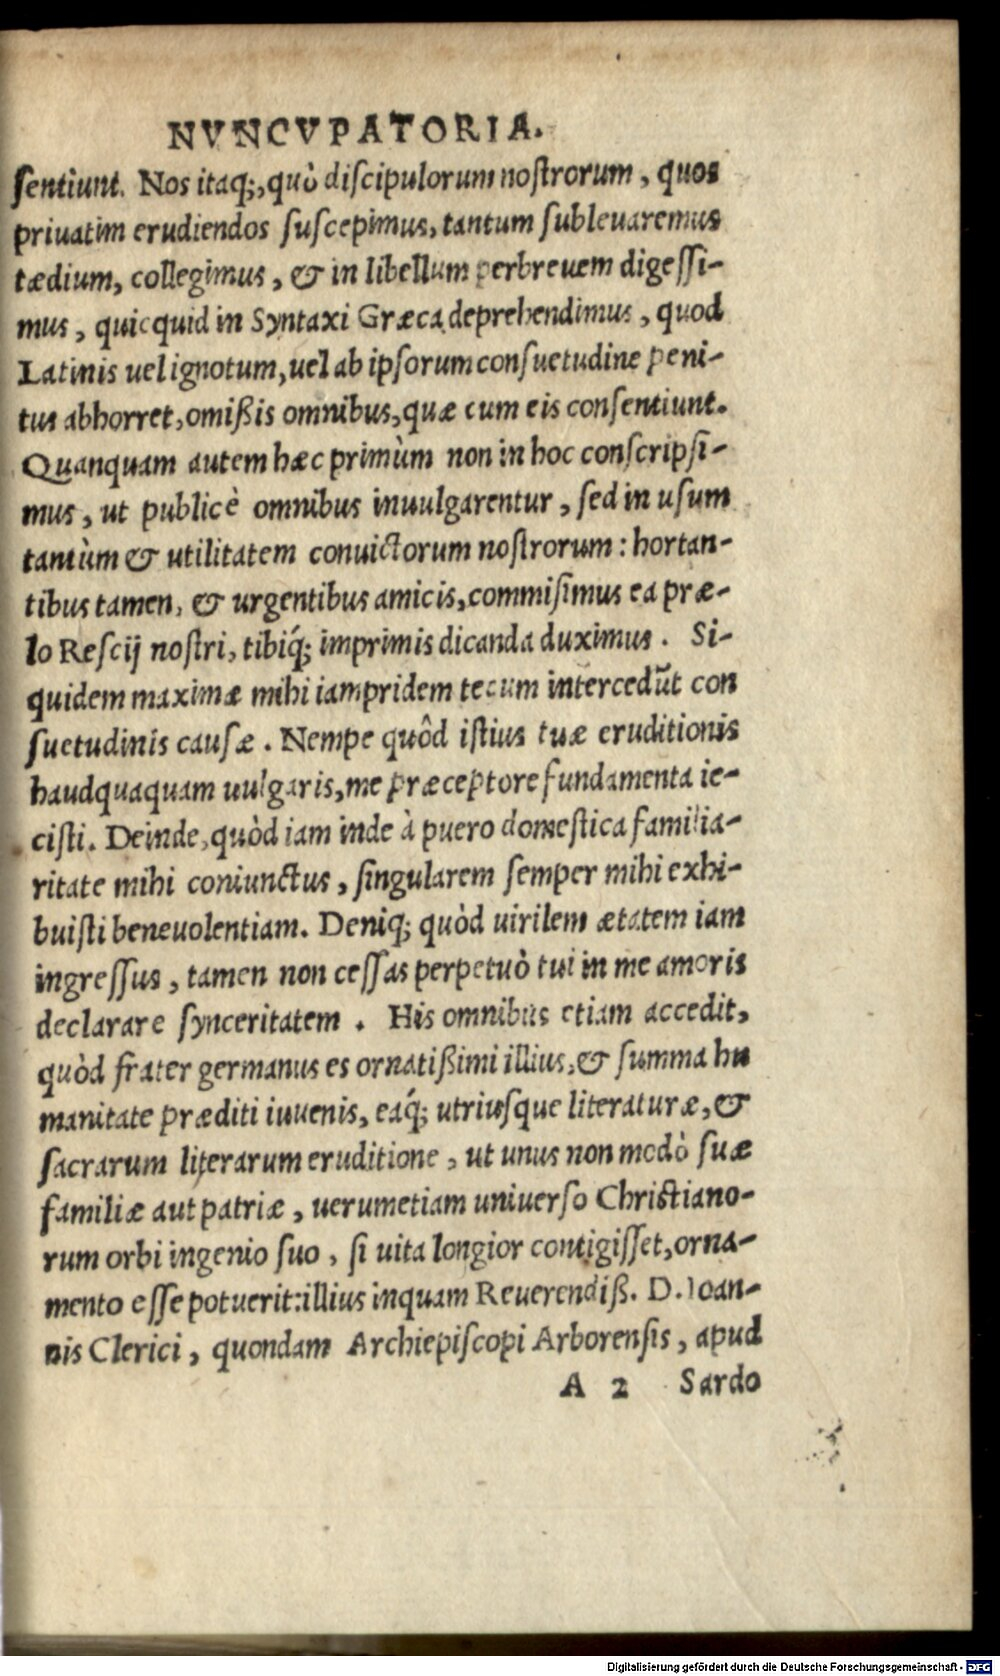 NVNCVPATORIA.
sentiunt. Nos itaq;, quò discipulorum nostrorum, quos
priuatim erudiendos suscepimus, tantum subleuaremus
tædium, collegimus, & in libellum perbreuem digessi-
mus, quicquid in Syntaxi Græca deprehendimus, quod
Latinis uel ignotum, uel ab ipsorum consuetudine peni-
tus abhorret, omißis omnibus, quæ cum eis consentiunt.
Quanquam autem hæc primùm non in hoc conscripsi-
mus, ut publicè omnibus inuulgarentur, sed in usum
tantùm & utilitatem conuictorum nostrorum: hortan-
tibus tamen, & urgentibus amicis, commisimus ea præ-
lo Rescij nostri, tibiq́; imprimis dicanda duximus. Si-
quidem maximæ mihi iampridem tecum intercedũt con
suetudinis causæ. Nempe quôd istius tuæ eruditionis
haudquaquam uulgaris, me præceptore fundamenta ie-
cisti. Deinde, quòd iam inde à puero domestica familia-
ritate mihi coniunctus, singularem semper mihi exhi-
buisti beneuolentiam. Deniq; quòd uirilem ætatem iam
ingressus, tamen non cessas perpetuò tui in me amoris
declarare synceritatem. His omnibus etiam accedit,
quòd frater germanus es ornatißimi illius, & summa hu
manitate præditi iuuenis, eaq́; utriusque literaturæ, &
sacrarum literarum eruditione, ut unus non modò suæ
familiæ aut patriæ, uerumetiam uniuerso Christiano-
rum orbi ingenio suo, si uita longior contigisset, orna-
mento esse potuerit: illius inquam Reuerendiß. D. Ioan-
nis Clerici, quondam Archiepiscopi Arborensis, apud
A 2 Sardo
Digitalisierung gefördert durch die Deutsche Forschungsgemeinschaft - DFG